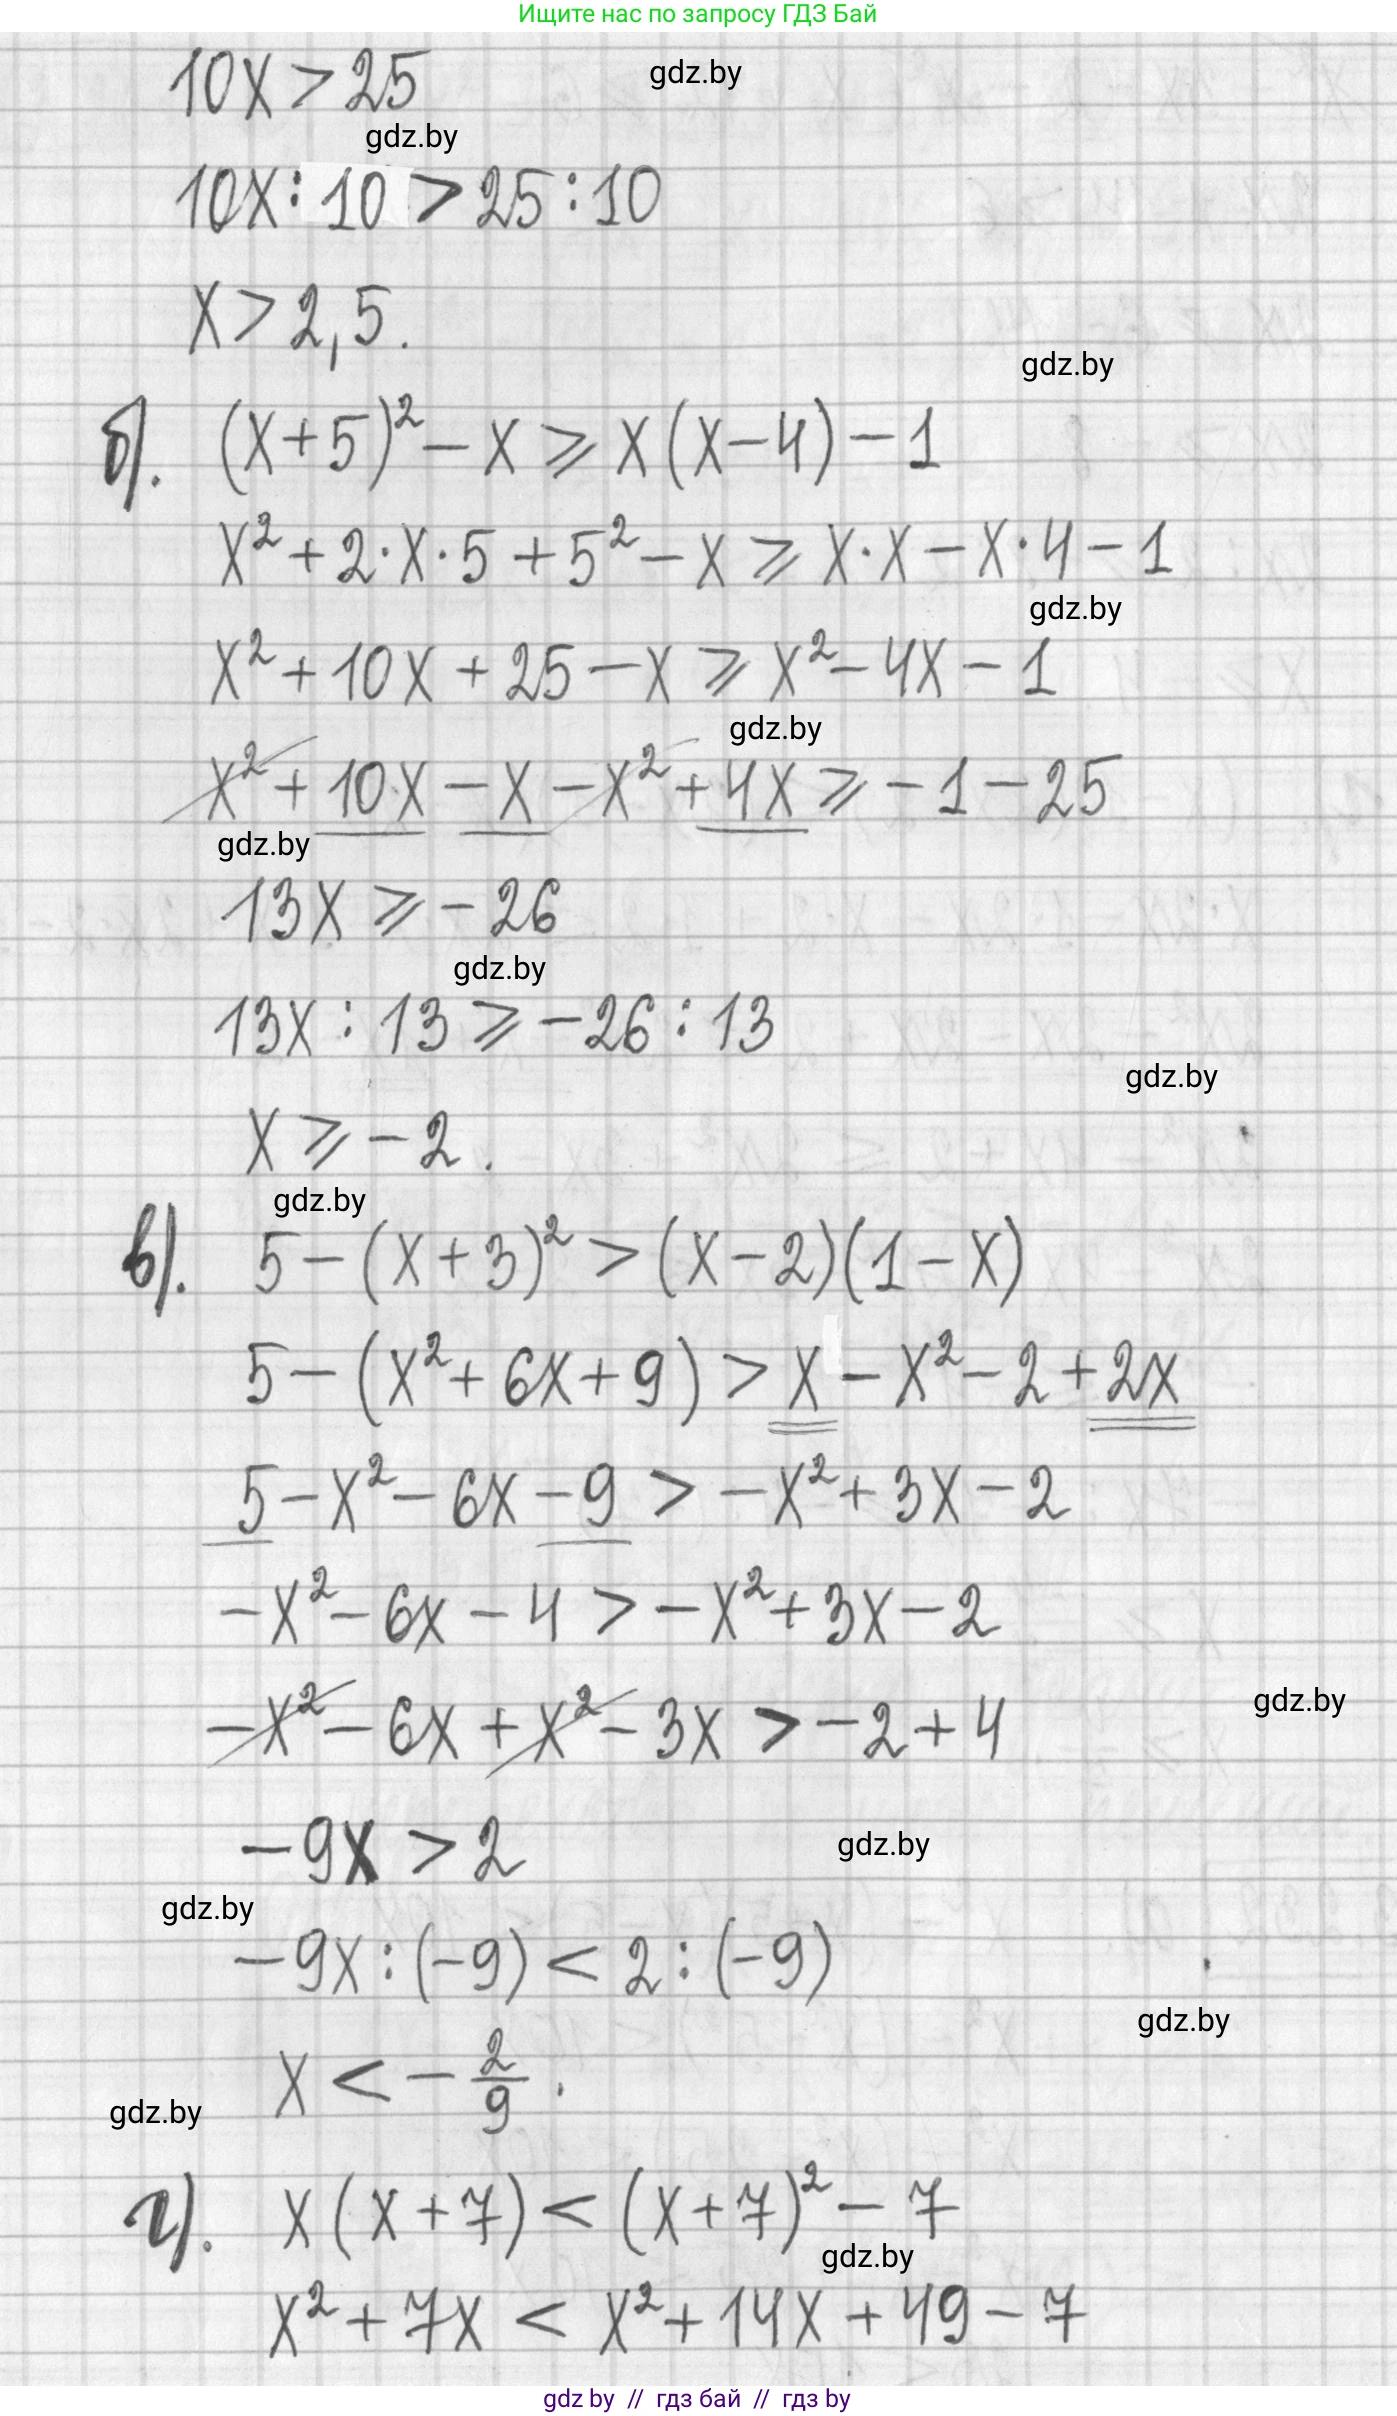 Ищите нас по запросу ГДЗ Бай
10x > 25
gdz.by
gdz.by
10x : 10 > 25 : 10
x > 2,5.
gdz.by
б). (x+5)² - x ⩾ x(x-4) - 1
x² + 2·x·5 + 5² - x ⩾ x·x - x·4 - 1
gdz.by
x² + 10x + 25 - x ⩾ x² - 4x - 1
gdz.by
x² + 10x - x - x² + 4x ⩾ -1 - 25
gdz.by
13x ⩾ -26
gdz.by
13x : 13 ⩾ -26 : 13
gdz.by
x ⩾ -2.
gdz.by
в). 5 - (x+3)² > (x-2)(1-x)
5 - (x² + 6x + 9) > x - x² - 2 + 2x
5 - x² - 6x - 9 > -x² + 3x - 2
-x² - 6x - 4 > -x² + 3x - 2
gdz.by
-x² - 6x + x² - 3x > -2 + 4
-9x > 2
gdz.by
gdz.by
-9x : (-9) < 2 : (-9)
gdz.by
x < - 2/9.
gdz.by
г). x(x+7) < (x+7)² - 7
gdz.by
x² + 7x < x² + 14x + 49 - 7
gdz by // гдз бай // гдз by